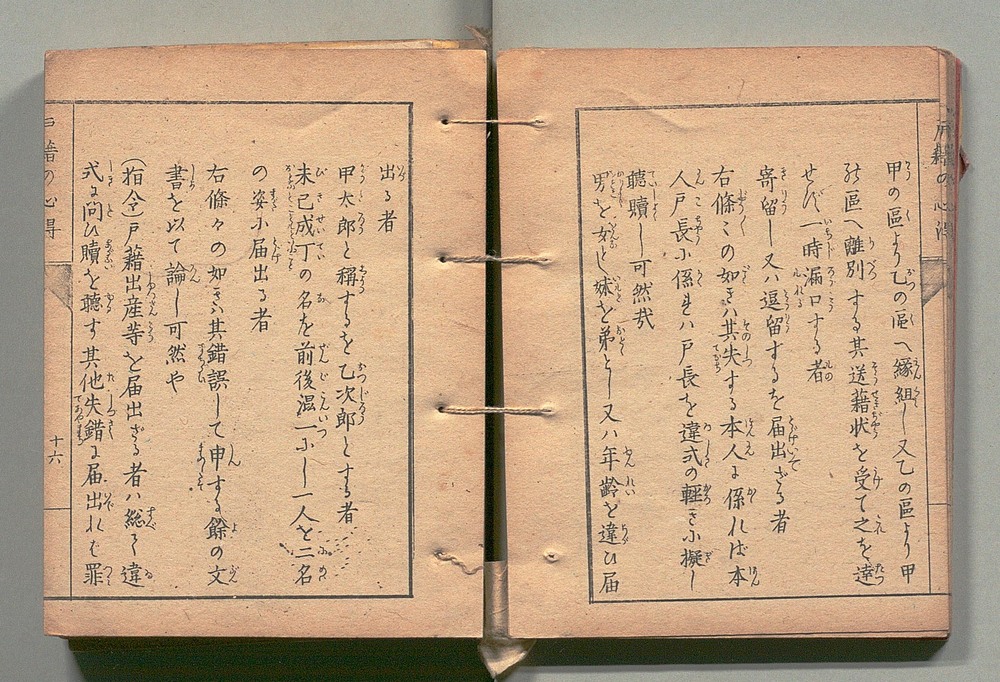 甲の區より乙の區へ縁組し又乙の區より甲
の區へ離別する其送藉状を受て之を達
せず一時漏口する者
寄留し又ハ逗留するを届出ざる者
右條々の如きハ其失する本人に係れば本
人戸長に係れハ戸長を違式の輕きに擬し
聽贖し可然哉
男を女とし妹を弟とし又ハ年齡を違ひ届
出る者
甲太郎と稱するを乙次郎とする者
未已成丁の名を前後混一にし一人を二名
の姿に届出る者
右條々の如きハ其錯誤して申する餘の文
書を以て論し可然や
(指令)戸藉出産等を届出ざる者ハ總て違
式に問ひ贖を聽す其他失錯に届出れば罪
戸藉の心得
十六